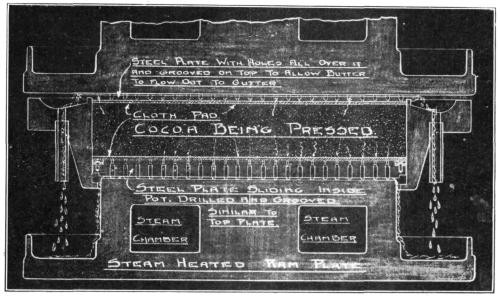 STEEL PLATE WITH HOLES ALL OVER IT
AND GROOVED ON TOP TO ALLOW BUTTER
TO FLOW OUT TO GUTTER
CLOTH PAD
COCOA BEING PRESSED
STEEL PLATE SLIDING INSIDE
POT, DRILLED AND GROOVED
SIMILAR TO
TOP PLATE
STEAM
CHAMBER
STEAM
CHAMBER
STEAM HEATED RAM PLATE